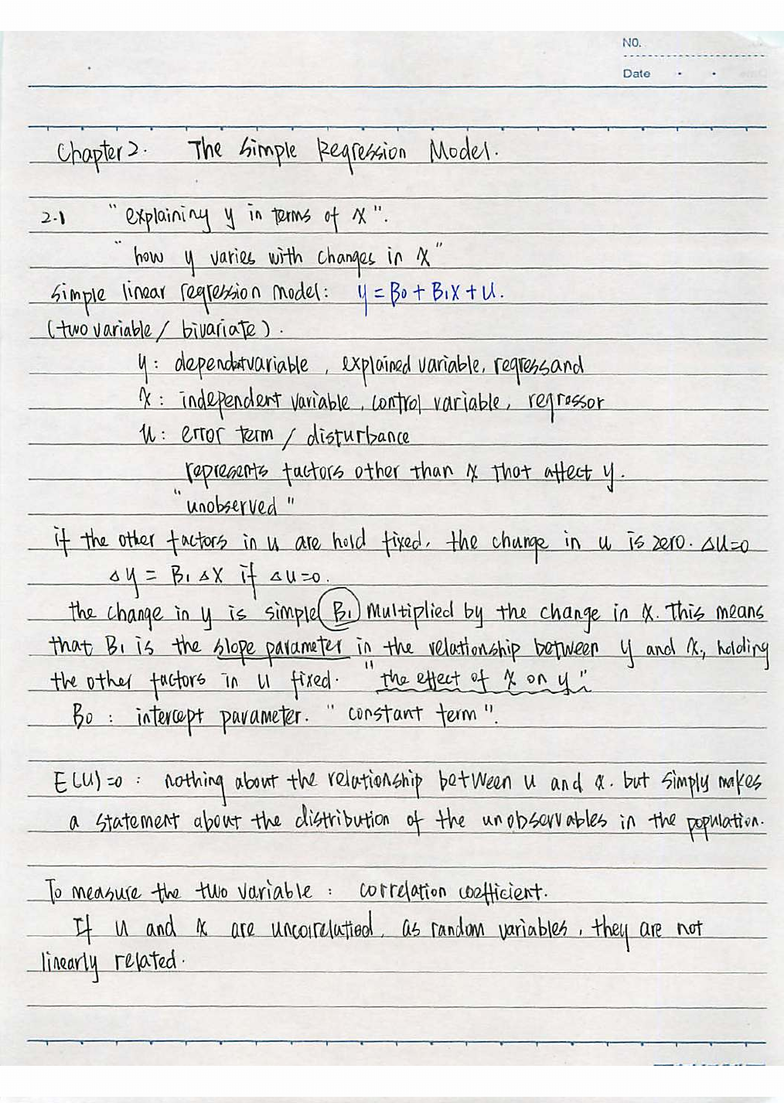 NO.
Date
Chapter 2. The Simple Regression Model.
2.1 "explaining y in terms of x".
"how y varies with changes in x"
Simple linear regression model: y = B0 + B1x + u.
(two variable / bivariate).
y: dependetvariable, explained variable, regressand
x: independent variable, control variable, regressor
u: error term / disturbance
represents factors other than x that affect y.
"unobserved"
if the other factors in u are hold fixed, the change in u is zero. Δu=0
Δy = B1 Δx if Δu=0.
the change in y is simple B1 multiplied by the change in x. This means
that B1 is the slope parameter in the relationship between y and x, holding
the other factors in u fixed. "the effect of x on y"
B0: intercept parameter. "constant term".
E(u)=0: nothing about the relationship between u and x. but simply makes
a statement about the distribution of the unobservables in the population.
To measure the two variable: correlation coefficient.
If u and x are uncorrelatied, as random variables, they are not
linearly related.